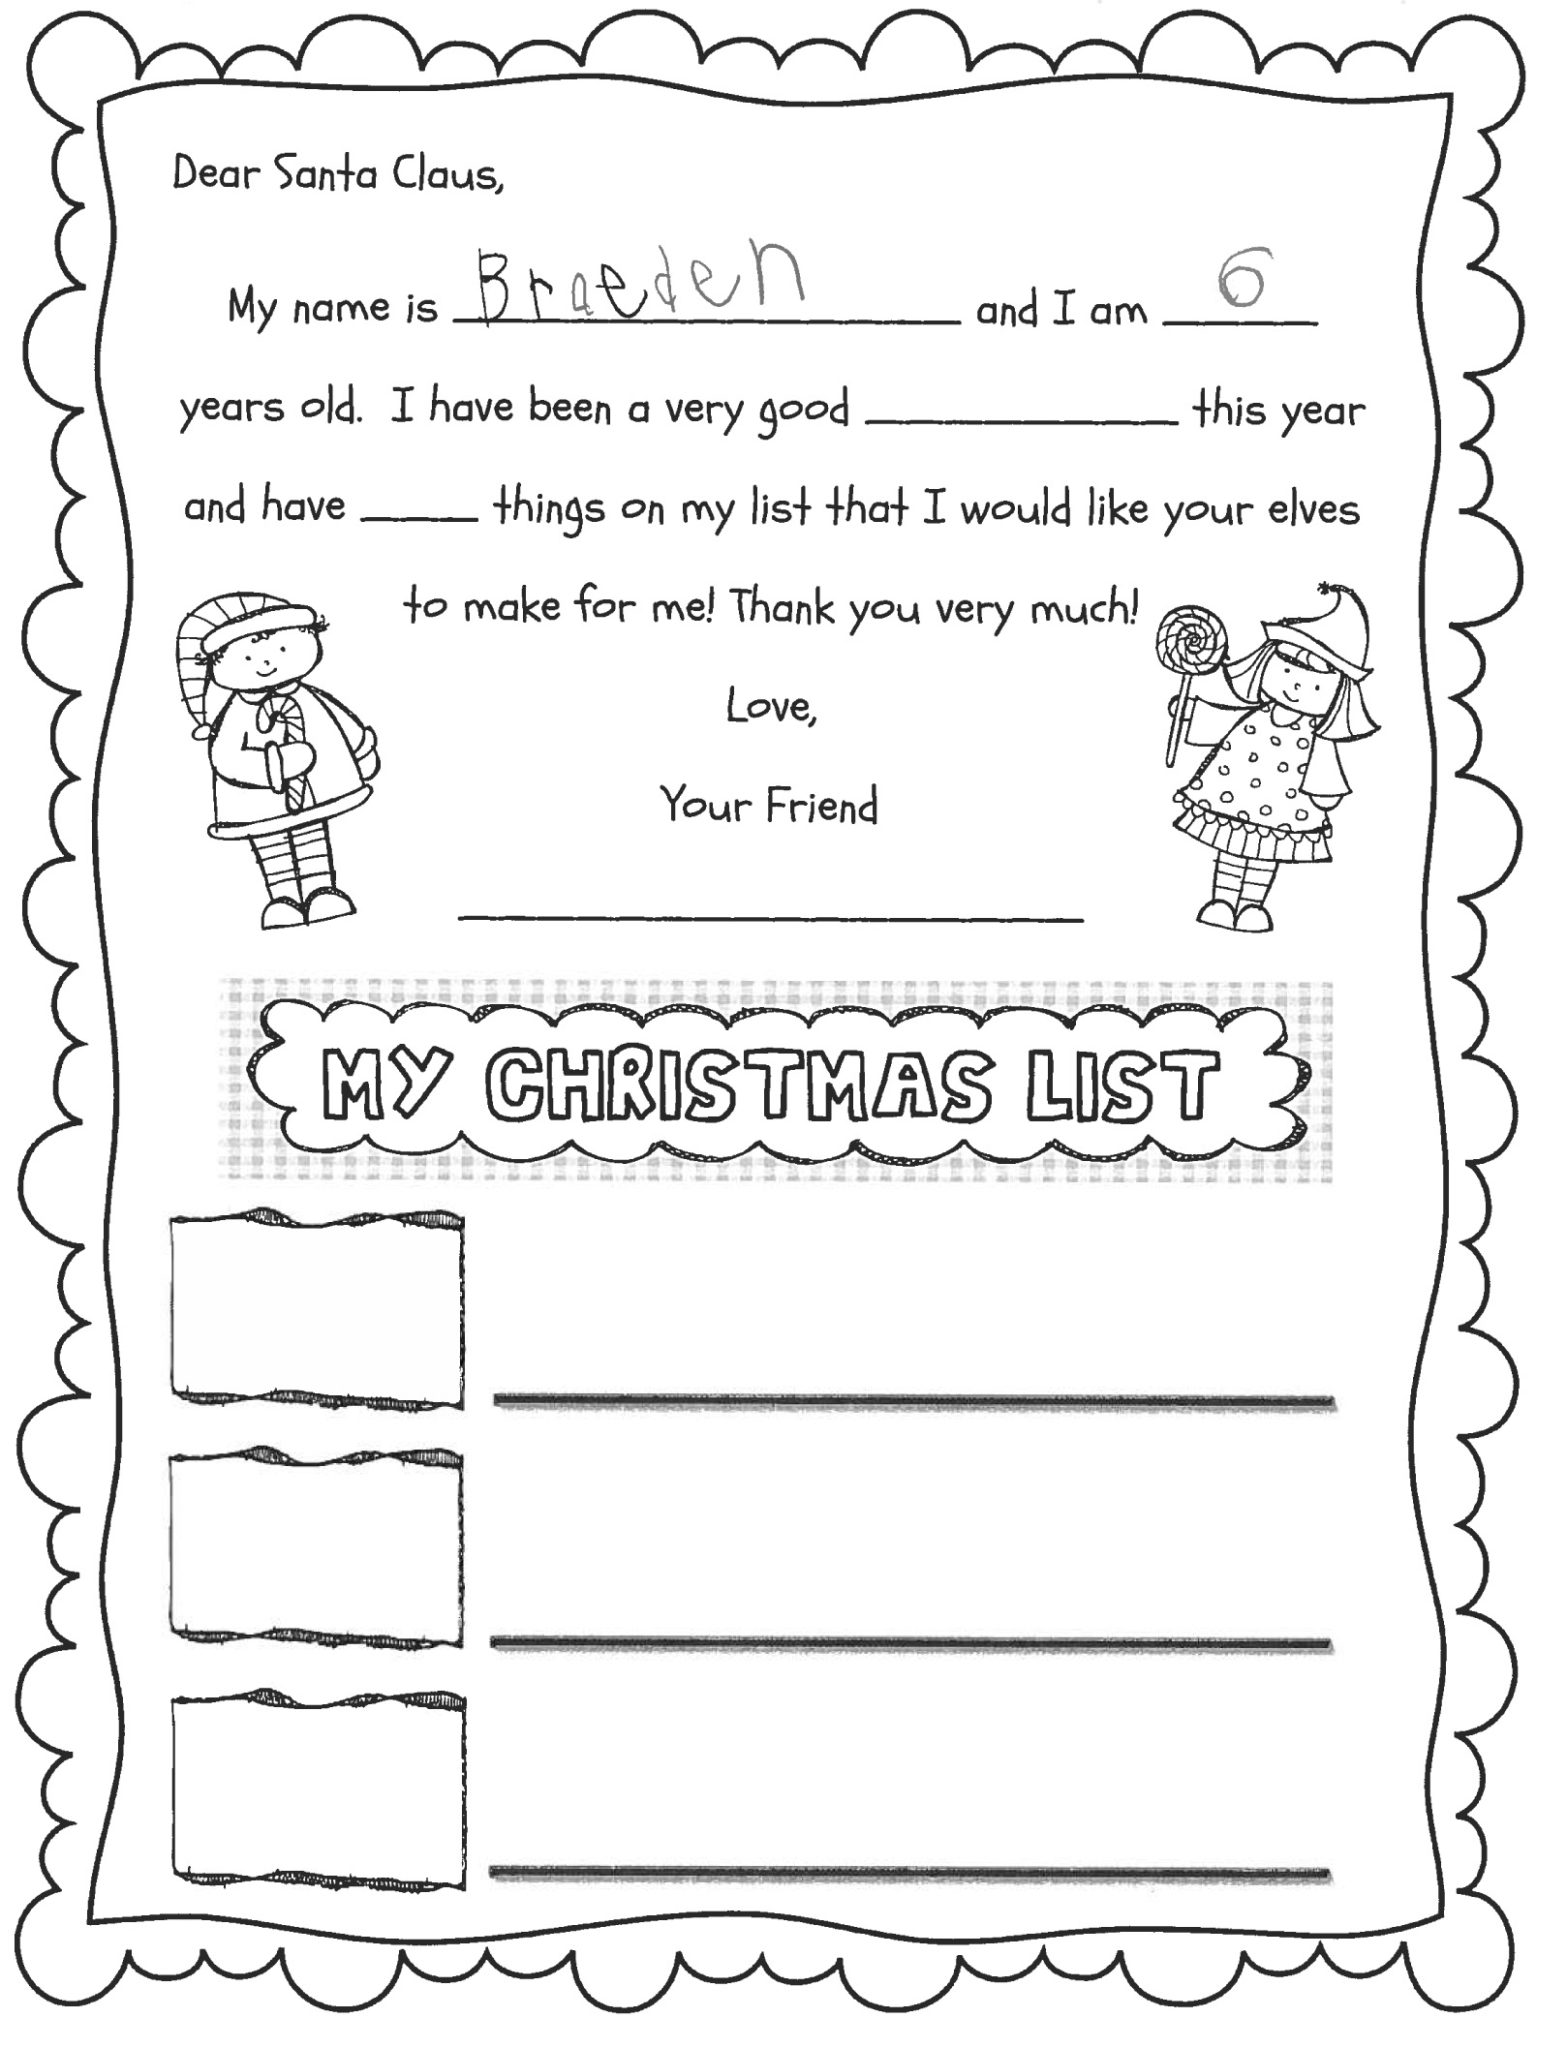 Dear Santa Claus,
My name is Braeden and I am 6
years old. I have been a very good ______ this year
and have ____ things on my list that I would like your elves
to make for me! Thank you very much!
Love,
Your Friend
MY CHRISTMAS LIST